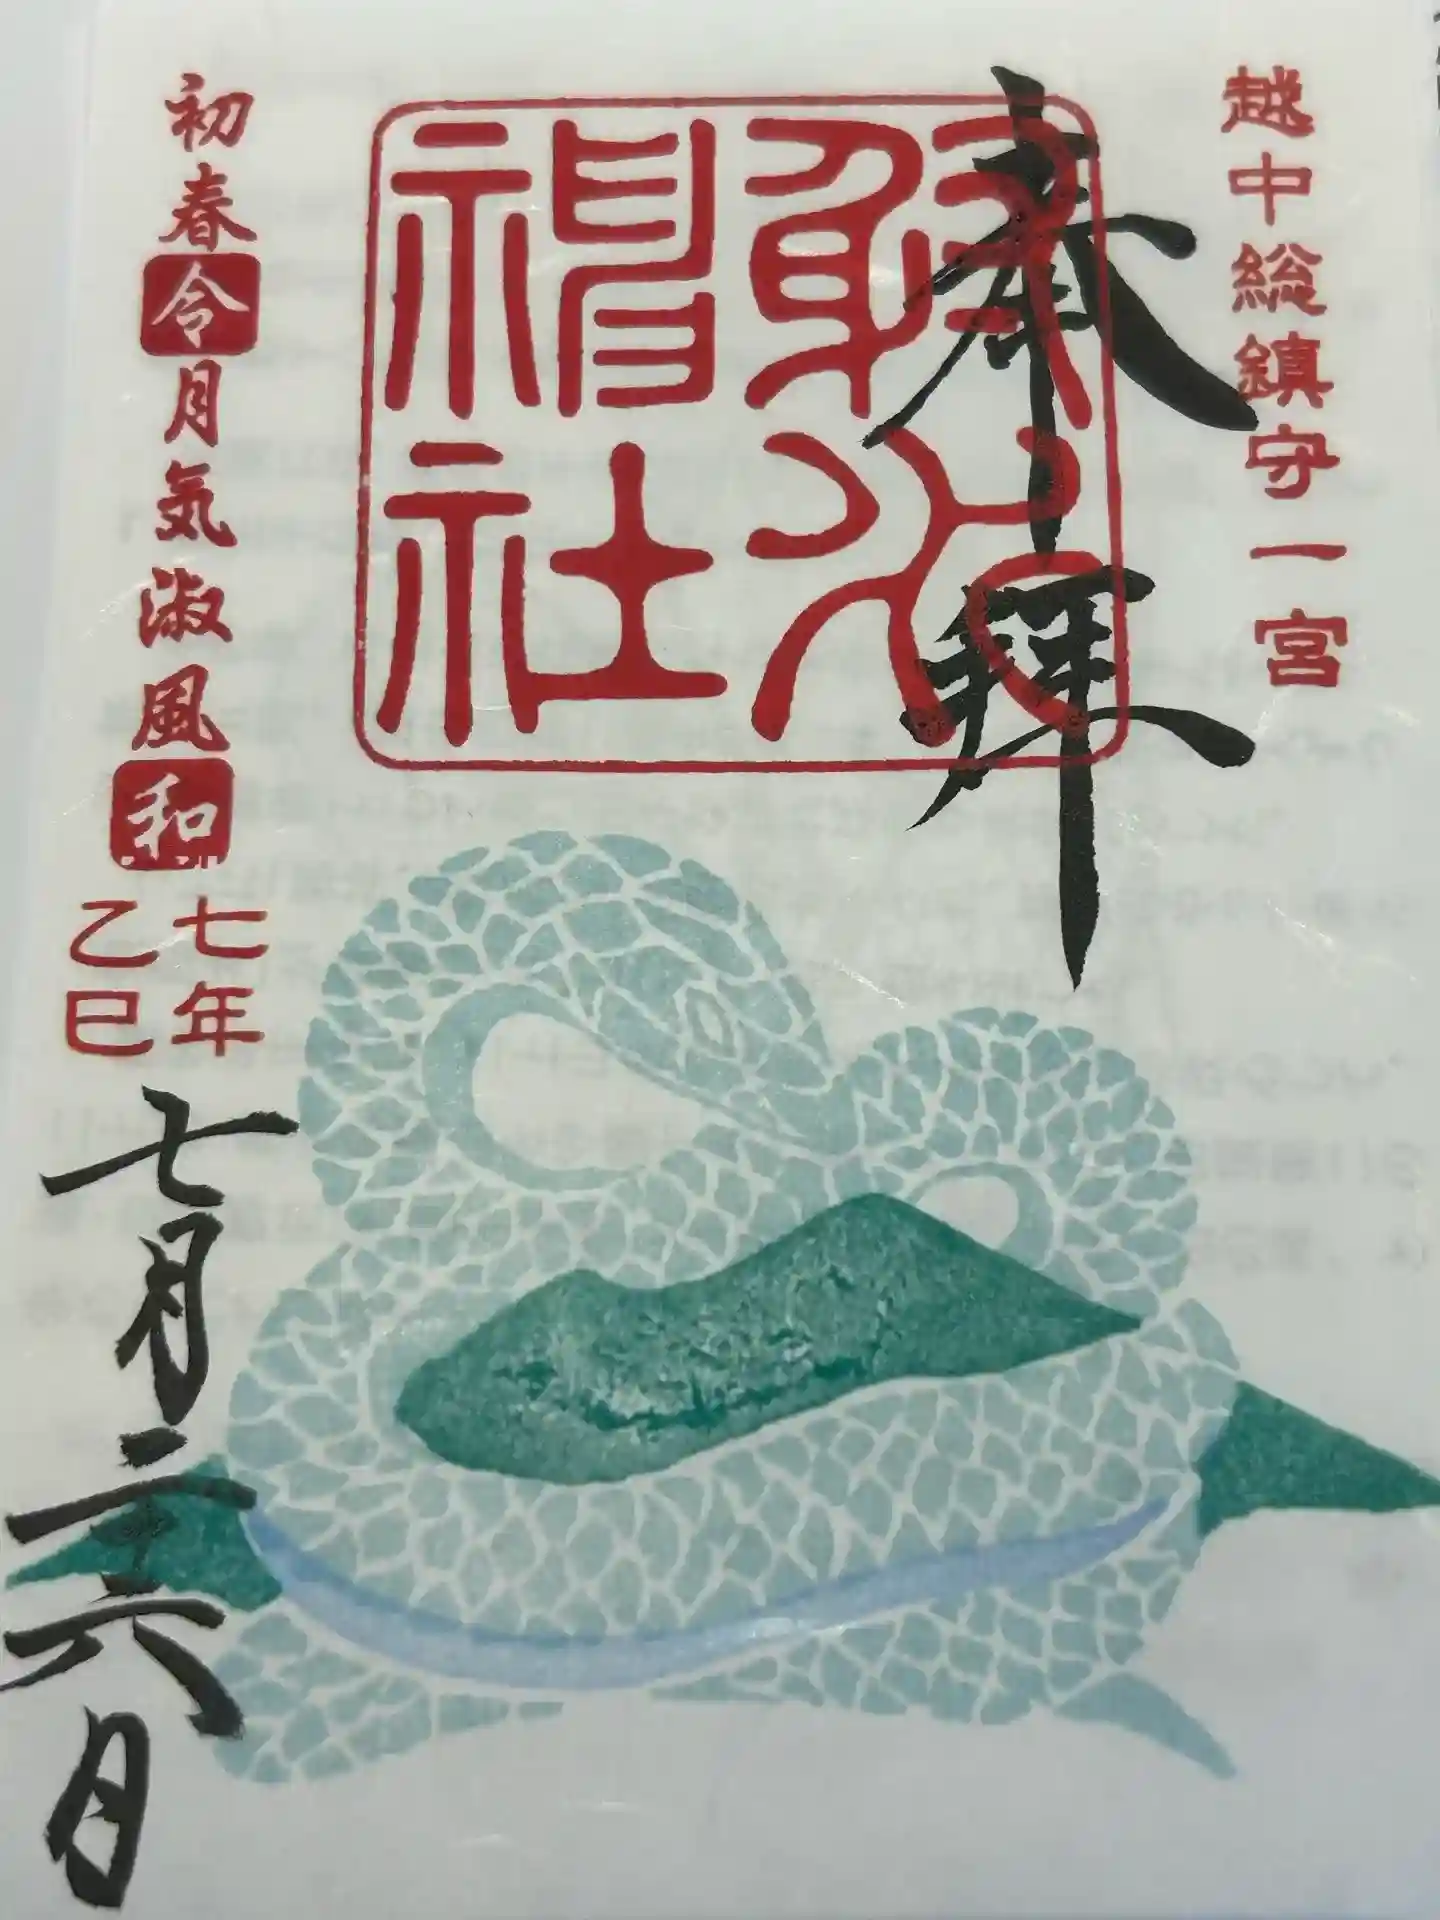 越中総鎮守一宮
奉拝
射水
神社
初春令月気淑風和
七年
乙巳
七月二十六日